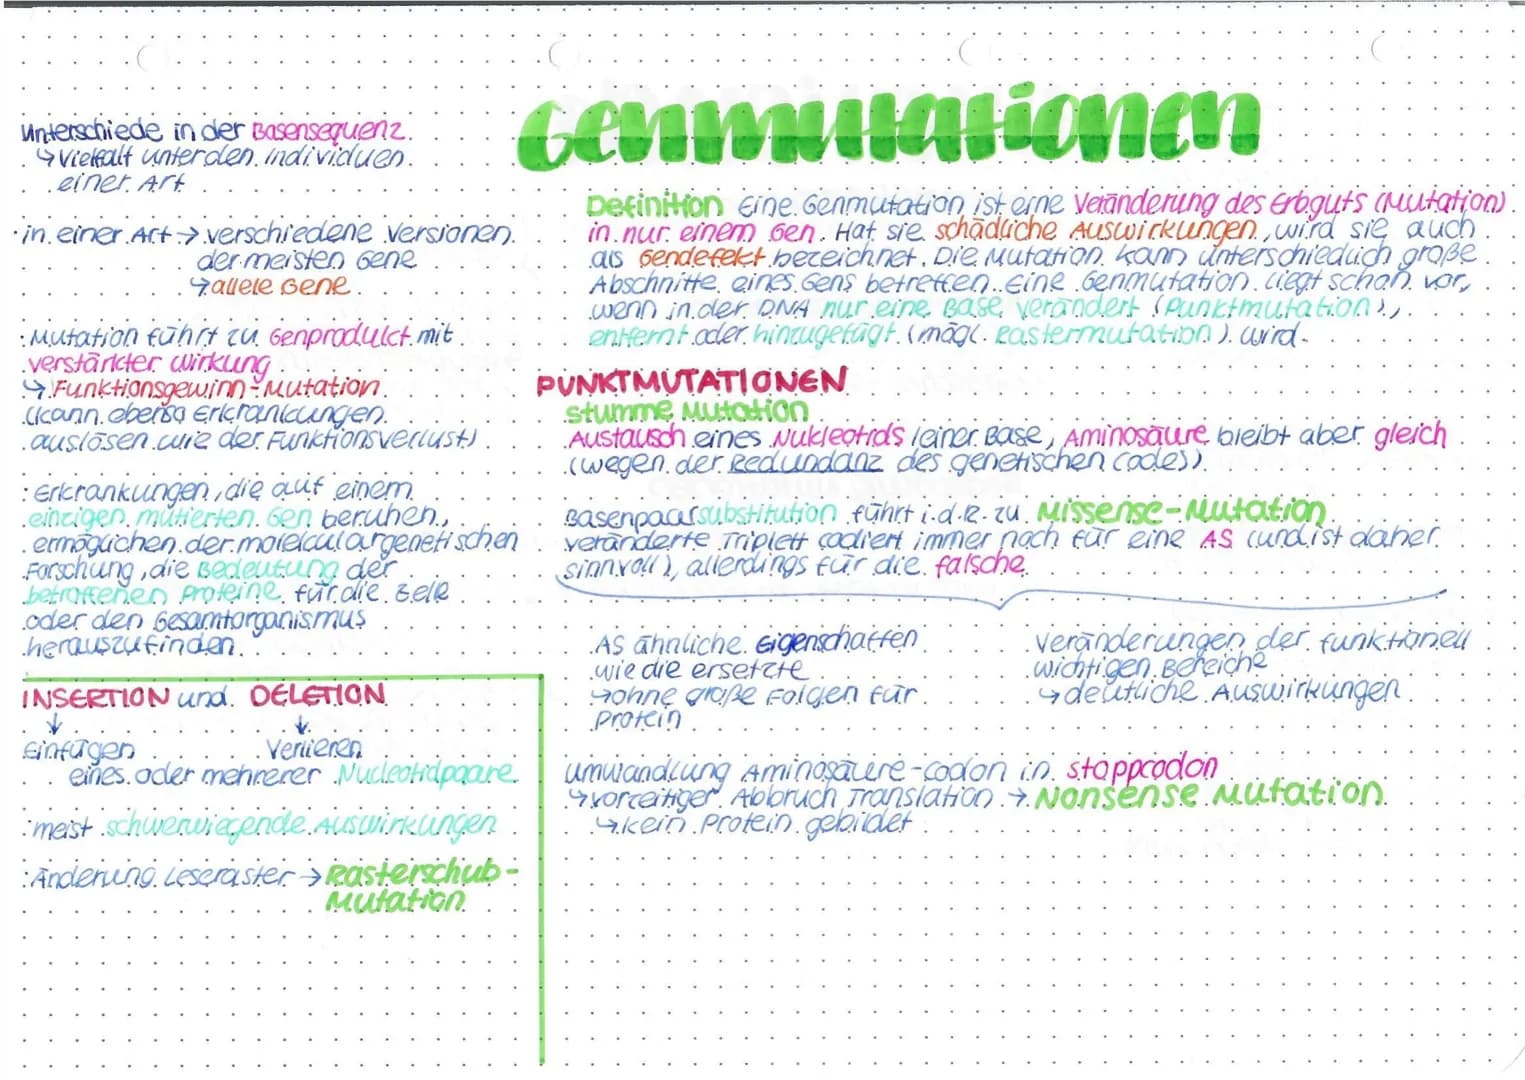 Genmutationen
Unterschiede in der Basensequenz
↳ Vielfalt unter den Individuen
einer Art
· in einer Art → verschiedene Versionen
der meisten Gene
↳ allele Gene
· Mutation führt zu Genprodukt mit
verstärkter Wirkung
↳ Funktionsgewinn-Mutation
(kann ebenso Erkrankungen
auslösen wie der Funktionsverlust)
· Erkrankungen, die auf einem
einzigen mutierten Gen beruhen,
ermöglichen der molekulargenetischen
Forschung, die Bedeutung der
betroffenen Proteine für die Zelle
oder den Gesamtorganismus
herauszufinden.
INSERTION und DELETION
↓ ↓
Einfügen Verlieren
eines oder mehrerer Nucleotidpaare
· meist schwerwiegende Auswirkungen
· Änderung Leseraster → Rasterschub-
Mutation
Definition Eine Genmutation ist eine Veränderung des Erbguts (Mutation)
in nur einem Gen. Hat sie schädliche Auswirkungen, wird sie auch
als Gendefekt bezeichnet. Die Mutation kann unterschiedlich große
Abschnitte eines Gens betreffen. Eine Genmutation liegt schon vor,
wenn in der DNA nur eine Base verändert (Punktmutation),
entfernt oder hinzugefügt (mögl. Rastermutation) wird.
PUNKTMUTATIONEN
stumme Mutation
Austausch eines Nukleotids (einer Base, Aminosäure bleibt aber gleich
(wegen der Redundanz des genetischen Codes))
Basenpaarsubstitution führt i.d.R. zu Missense-Mutation
veränderte Triplett codiert immer noch für eine AS (und ist daher
sinnvoll), allerdings für die falsche
AS ähnliche Eigenschaften
wie die ersetzte
↳ ohne große Folgen für
Protein
Veränderungen der funktionell
wichtigen Bereiche
↳ deutliche Auswirkungen
Umwandlung Aminosäure-Codon in Stoppcodon
↳ vorzeitiger Abbruch Translation → Nonsense Mutation
↳ kein Protein gebildet